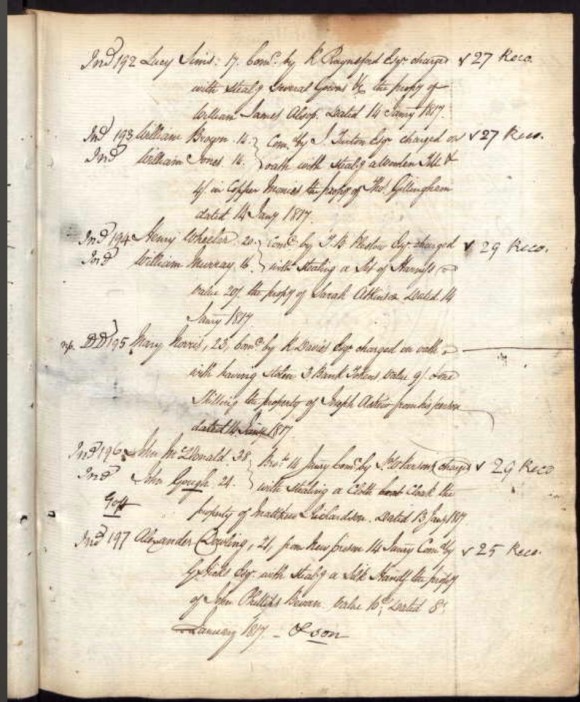 Ind 192 Lucy Sims: 17. Comd. by R Raynsford Esqr charged √ 27 Reco.
with Stealg Several Gowns &c the propy of
William James Alsop. Dated 14 Jany 1817.
Ind 193 William Brogan 14. } Com. by J. Turton Esqr charged on √ 27 Reco.
Ind William Jones 14. } oath with Stealg a Wooden Till &
4/ in Copper Monies the propy of Thos. Gillingham
dated 14 Jany 1817.
Ind 194 Henry Wheeler 20. } Comd. by Esqr charged √ 29 Reco.
Ind William Murray 16. } with Stealing a Set of Harness
value 20/ the propy of Sarah Atkinson Dated 14
Jany 1817
DD 195 Mary Norris, 23, Comd by R Davies Esqr charged on oath
with having Stolen 3 Bank Tokens value 9/ & one
Shilling the property of Joseph from his person
dated 14 Jany 1817
Ind 196 John McDonald 38 } 14 Jany Comd by charged √ 29 Reco
Ind John Gough. 24. } with Stealing a Cloth Cloak the
Goff property of Matthew Richardson. Dated 13 Jany 1817
Ind 197 Alexander Dowling, 21, from New prison 14 Jany Com by √ 25 Reco.
Esqr with Stealg a Silk Handf the propy
of John Phillips Bevan value 10s, Dated 8th
January 1817 - & son